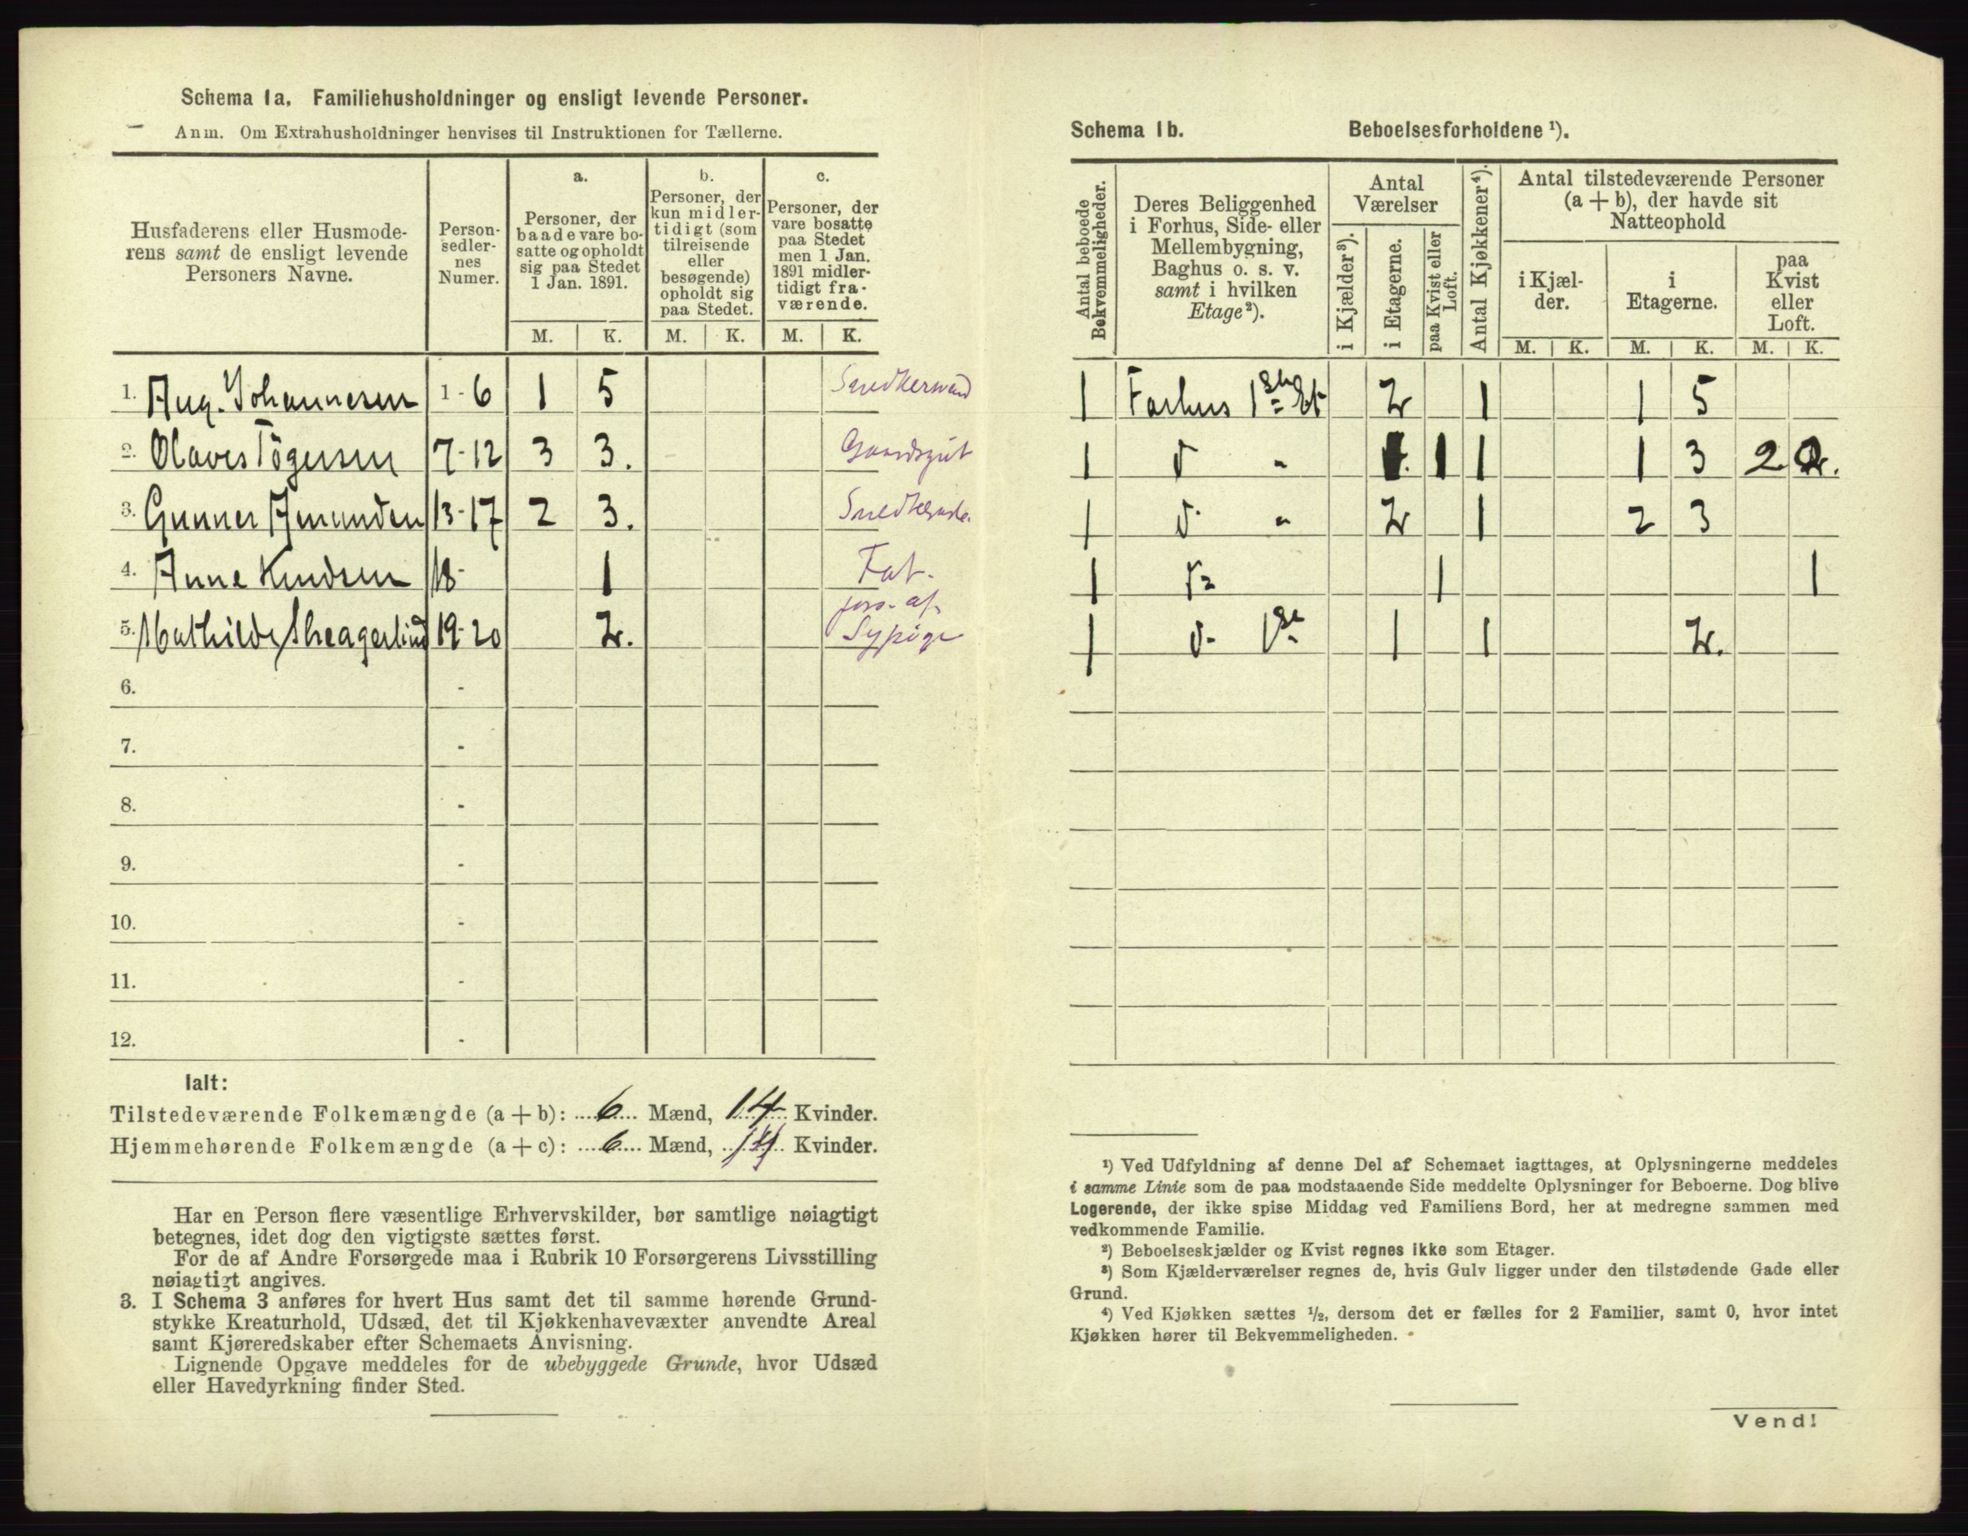 Schema 1a. Familiehusholdninger og ensligt levende Personer.
Anm. Om Extrahusholdninger henvises til Instruktionen for Tællerne.
Husfaderens eller Husmode-
rens samt de ensligt levende
Personers Navne.
Person-
sedler-
nes
Numer.
a.
Personer, der
baade vare bo-
satte og opholdt
sig paa Stedet
1 Jan. 1891.
b.
Personer, der
kun midler-
tidigt (som
tilreisende
eller
besøgende)
opholdt sig
paa Stedet.
c.
Personer, der
vare bosatte
paa Stedet
men 1 Jan.
1891 midler-
tidigt fra-
værende.
M. K. M. K. M. K.
1. Aug. Johannesen 1-6 1 5
2. Olaves Tögersen 7-12 3 3.
3. Gunner Amunden 13-17 2 3.
4. Anne Knudsen 18- 1
Fat.
5. Mathilde 19-20 2.
6. -
7. -
8. -
9. -
10. -
11. -
12. -
Ialt:
Tilstedeværende Folkemængde (a + b): 6 Mænd, 14 Kvinder.
Hjemmehørende Folkemængde (a + c): 6 Mænd, 14 Kvinder.
Har en Person flere væsentlige Erhvervskilder, bør samtlige nøiagtigt
betegnes, idet dog den vigtigste sættes først.
For de af Andre Forsørgede maa i Rubrik 10 Forsørgerens Livsstilling
nøiagtigt angives.
3. I Schema 3 anføres for hvert Hus samt det til samme hørende Grund-
stykke Kreaturhold, Udsæd, det til Kjøkkenhavevæxter anvendte Areal
samt Kjøreredskaber efter Schemaets Anvisning.
Lignende Opgave meddeles for de ubebyggede Grunde, hvor Udsæd
eller Havedyrkning finder Sted.
Schema 1b. Beboelsesforholdene ¹).
Antal beboede
Bekvemmeligheder.
Deres Beliggenhed
i Forhus, Side- eller
Mellembygning,
Baghus o. s. v.
samt i hvilken
Etage²).
Antal
Værelser
i Kjælder³).
i Etagerne.
paa Kvist eller
Loft.
Antal Kjøkkener⁴).
Antal tilstedeværende Personer
(a + b), der havde sit
Natteophold
i Kjæl-
der.
i
Etagerne.
paa
Kvist
eller
Loft.
M. K. M. K. M. K.
1 Forhus 1 Et 2 1 1 5
1 d " 1 1 1 3 2 2.
1 d " 2 1 2 3
1 1 1
1 d- 1 1 1 2.
¹) Ved Udfyldning af denne Del af Schemaet iagttages, at Oplysningerne meddeles
i samme Linie som de paa modstaaende Side meddelte Oplysninger for Beboerne. Dog blive
Logerende, der ikke spise Middag ved Familiens Bord, her at medregne sammen med
vedkommende Familie.
²) Beboelseskjælder og Kvist regnes ikke som Etager.
³) Som Kjælderværelser regnes de, hvis Gulv ligger under den tilstødende Gade eller
Grund.
⁴) Ved Kjøkken sættes ½, dersom det er fælles for 2 Familier, samt 0, hvor intet
Kjøkken hører til Bekvemmeligheden.
Vend!